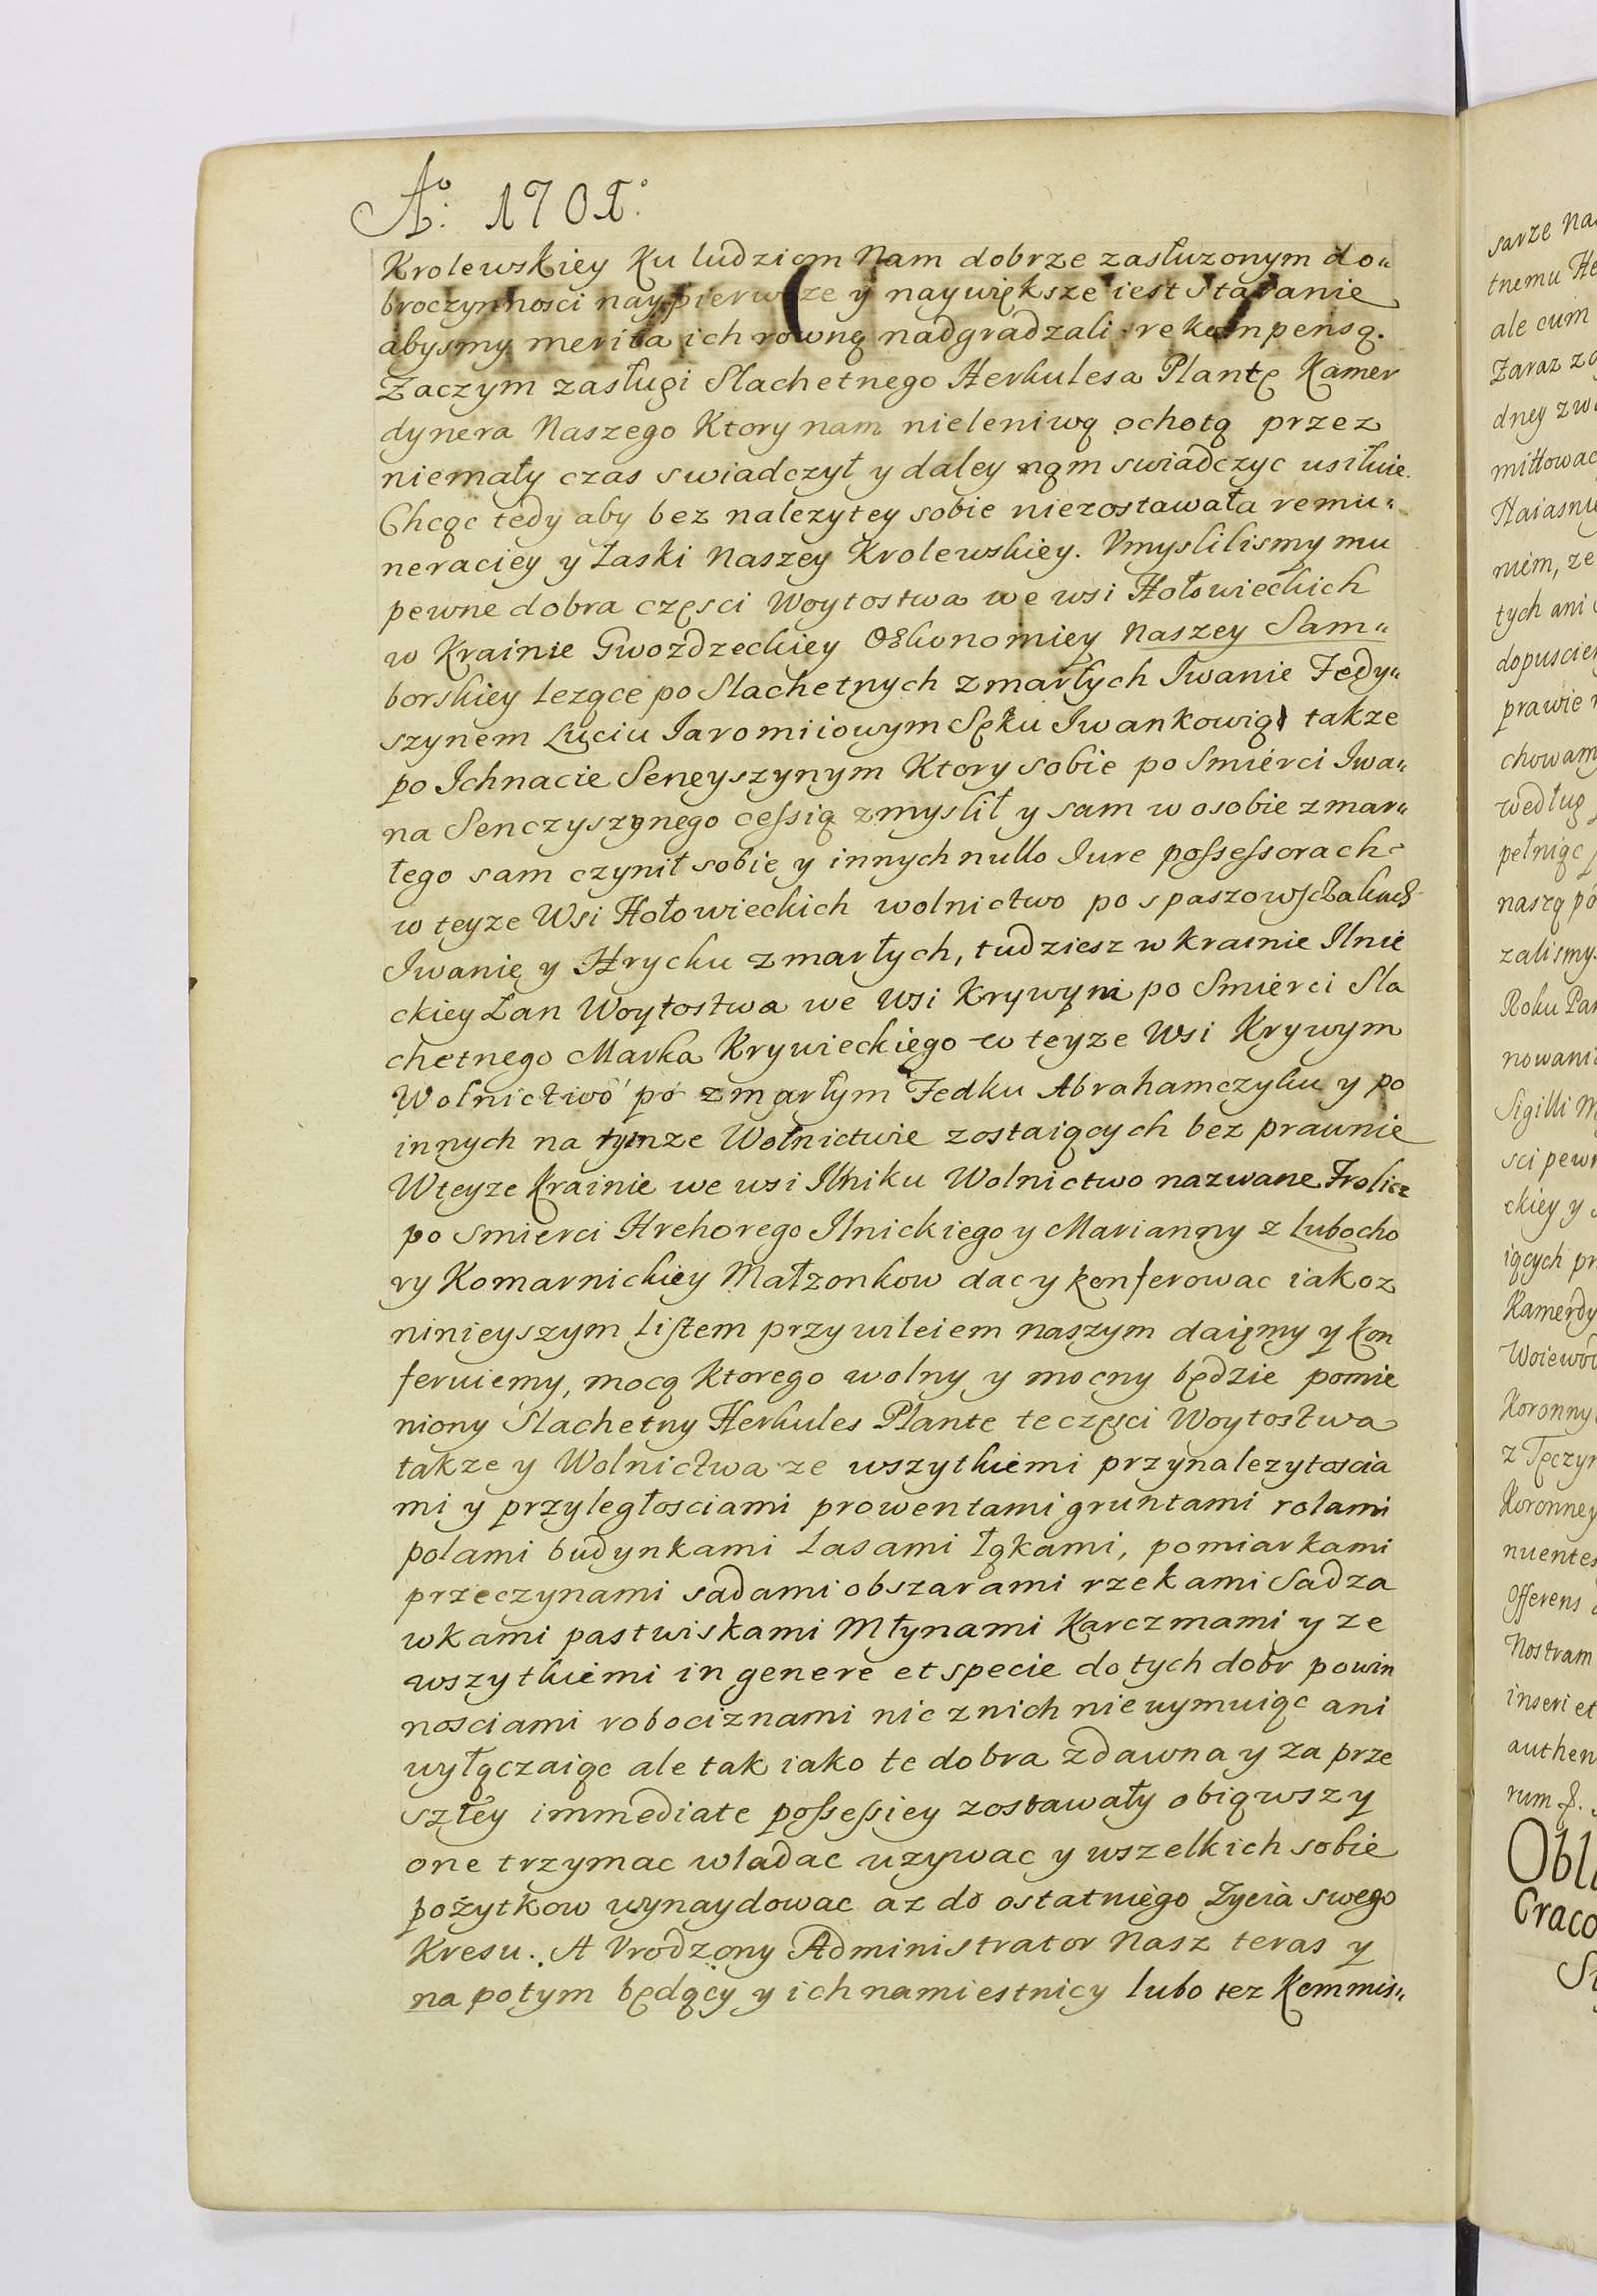 Aº: 1701º
Krolewskiey Ku ludziom Nam dobrze zasłuzonym do„
broczynnosci naypierwsze y naywiększe iest Staranie
abysmy merita ich rowną nadgradzali rekompensą.
Zaczym zasługi Slachetnego Herkulesa Plantę Kamer
dynera Naszego Ktory nam nieleniwą ochotą przez
niemały czas swiadczył y daley nąm swiadczyc usiłuie.
Chcąc tedy aby bez nalezytey sobie niezostawała remu„
neraciey y Łaski Naszey Krolewskiey. Vmyslilismy mu
pewne dobra częsci Woytostwa we wsi Hołowieckich
w Krainie Gwozdzeckiey Oekonomiey Naszey Sam„
borskiey Lezące po Slachetnych zmarłych Iwanie Fedy„
szynem Łuciu Iaromiiowym Sęku Iwankowią takze
po Ichnacie Seneyszynym Ktory sobie po Smierci Iwa„
na Senczyszynego cessią zmyslił y sam w osobie zmar„
łego sam czynił sobie y innych nullo Iure possessorach
w teyze Wsi Hołowieckich wolnictwo po
Iwanie y Hrycku zmarłych, tudziesz w krainie Ilnie
ckiey Łan Woytostwa we Wsi Krywym po Smierci Sla
chetnego Marka Krywieckiego w teyze Wsi Krywym
Wolnictwo po zmarłym Fedku Abrahamczyku y po
innych na tymze Wolnictwie zostaiących bez prawnie
Wteyze Krainie we wsi Ilniku Wolnictwo nazwane
po smierci Hrehorego Ilnickiego y Marianny z Lubocho
ry Komarnickiey Małzonkow dac y konferowac iakoz
ninieyszym Listem przywileiem naszym daięmy y kon
feruiemy, mocą ktorego wolny y mocny będzie pomie
niony Slachetny Herkules Plante te częsci Woytostwa
takze y Wolnictwa ze wszytkiemi przynalezytoscia
mi y przyległosciami prowentami gruntami rolami
polami budynkami Lasami łąkami, pomiarkami
przeczynami sadami obszarami rzekami Sadza
wkami pastwiskami Młynami Karczmami y ze
wszytkiemi in genere et specie do tych dobr powin
nosciami robociznami nic z nich nie uymuiąc ani
wyłączaiąc ale tak iako te dobra zdawna y za prze
szłey immediate possessiey zostawały obiąwszy
one trzymac władac uzywac y wszelkich sobie
pożytkow wynaydowac az do ostatniego Zycia swego
Kresu. A Vrodzony Administrator Nasz teras y
na potym będący y ich namiestnicy lubo tez Kommis„
sarze
tnemu
ale cum
Zaraz
dney
niem, ze
tych ani
prawie
według
pełniąc
zalismy
Roku
Sigilli
ckiey y
iących
z Tęczyn
Koronney
Offerens
Nostram
inseri et
rum